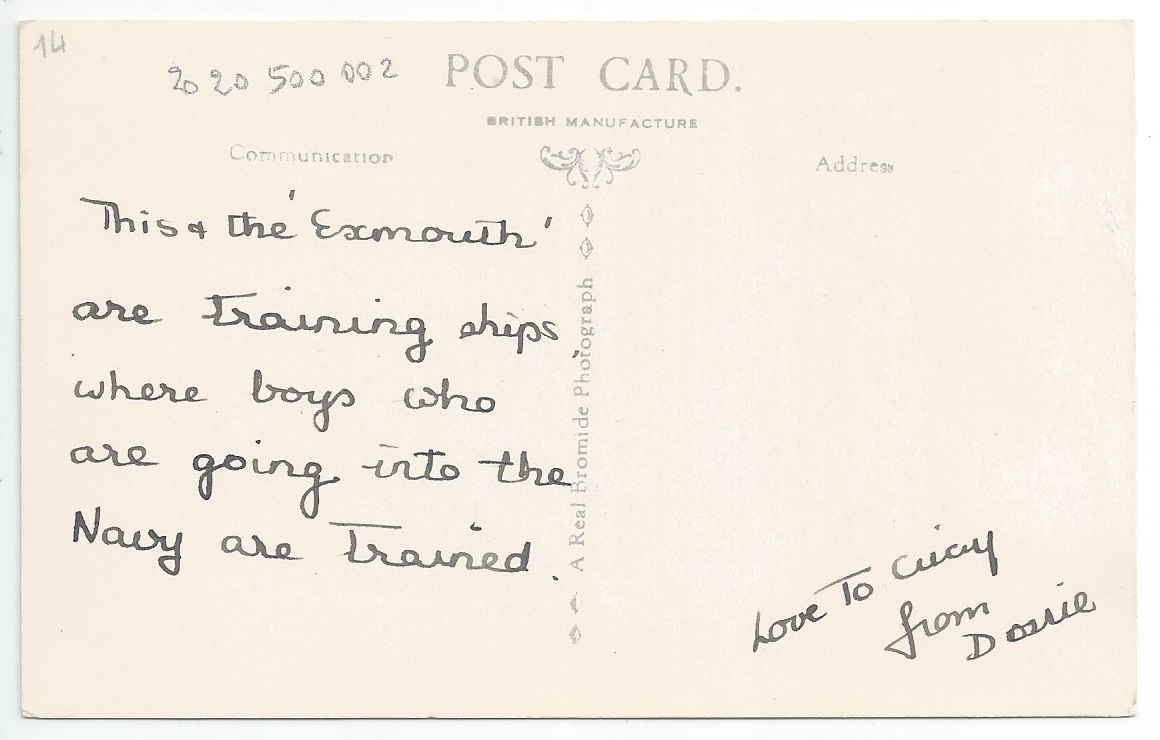 14
2020 500 002
POST CARD.
BRITISH MANUFACTURE
Communication
Address
This & the 'Exmouth'
are training ships
where boys who
are going into the
Navy are trained.
A Real Bromide Photograph
Love To
from